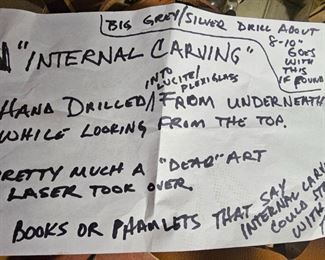 BIG GREY/SILVER DRILL ABOUT
8-10"
GOES
WITH
THIS
IF FOUND
"INTERNAL CARVING"
INTO
LUCITE/
PLEXIGLASS
HAND DRILLED/FROM UNDERNEATH
WHILE LOOKING FROM THE TOP.
PRETTY MUCH A "DEAD" ART
LASER TOOK OVER.
BOOKS OR PHAMLETS THAT SAY
INTERNAL CARV
COULD
WITH